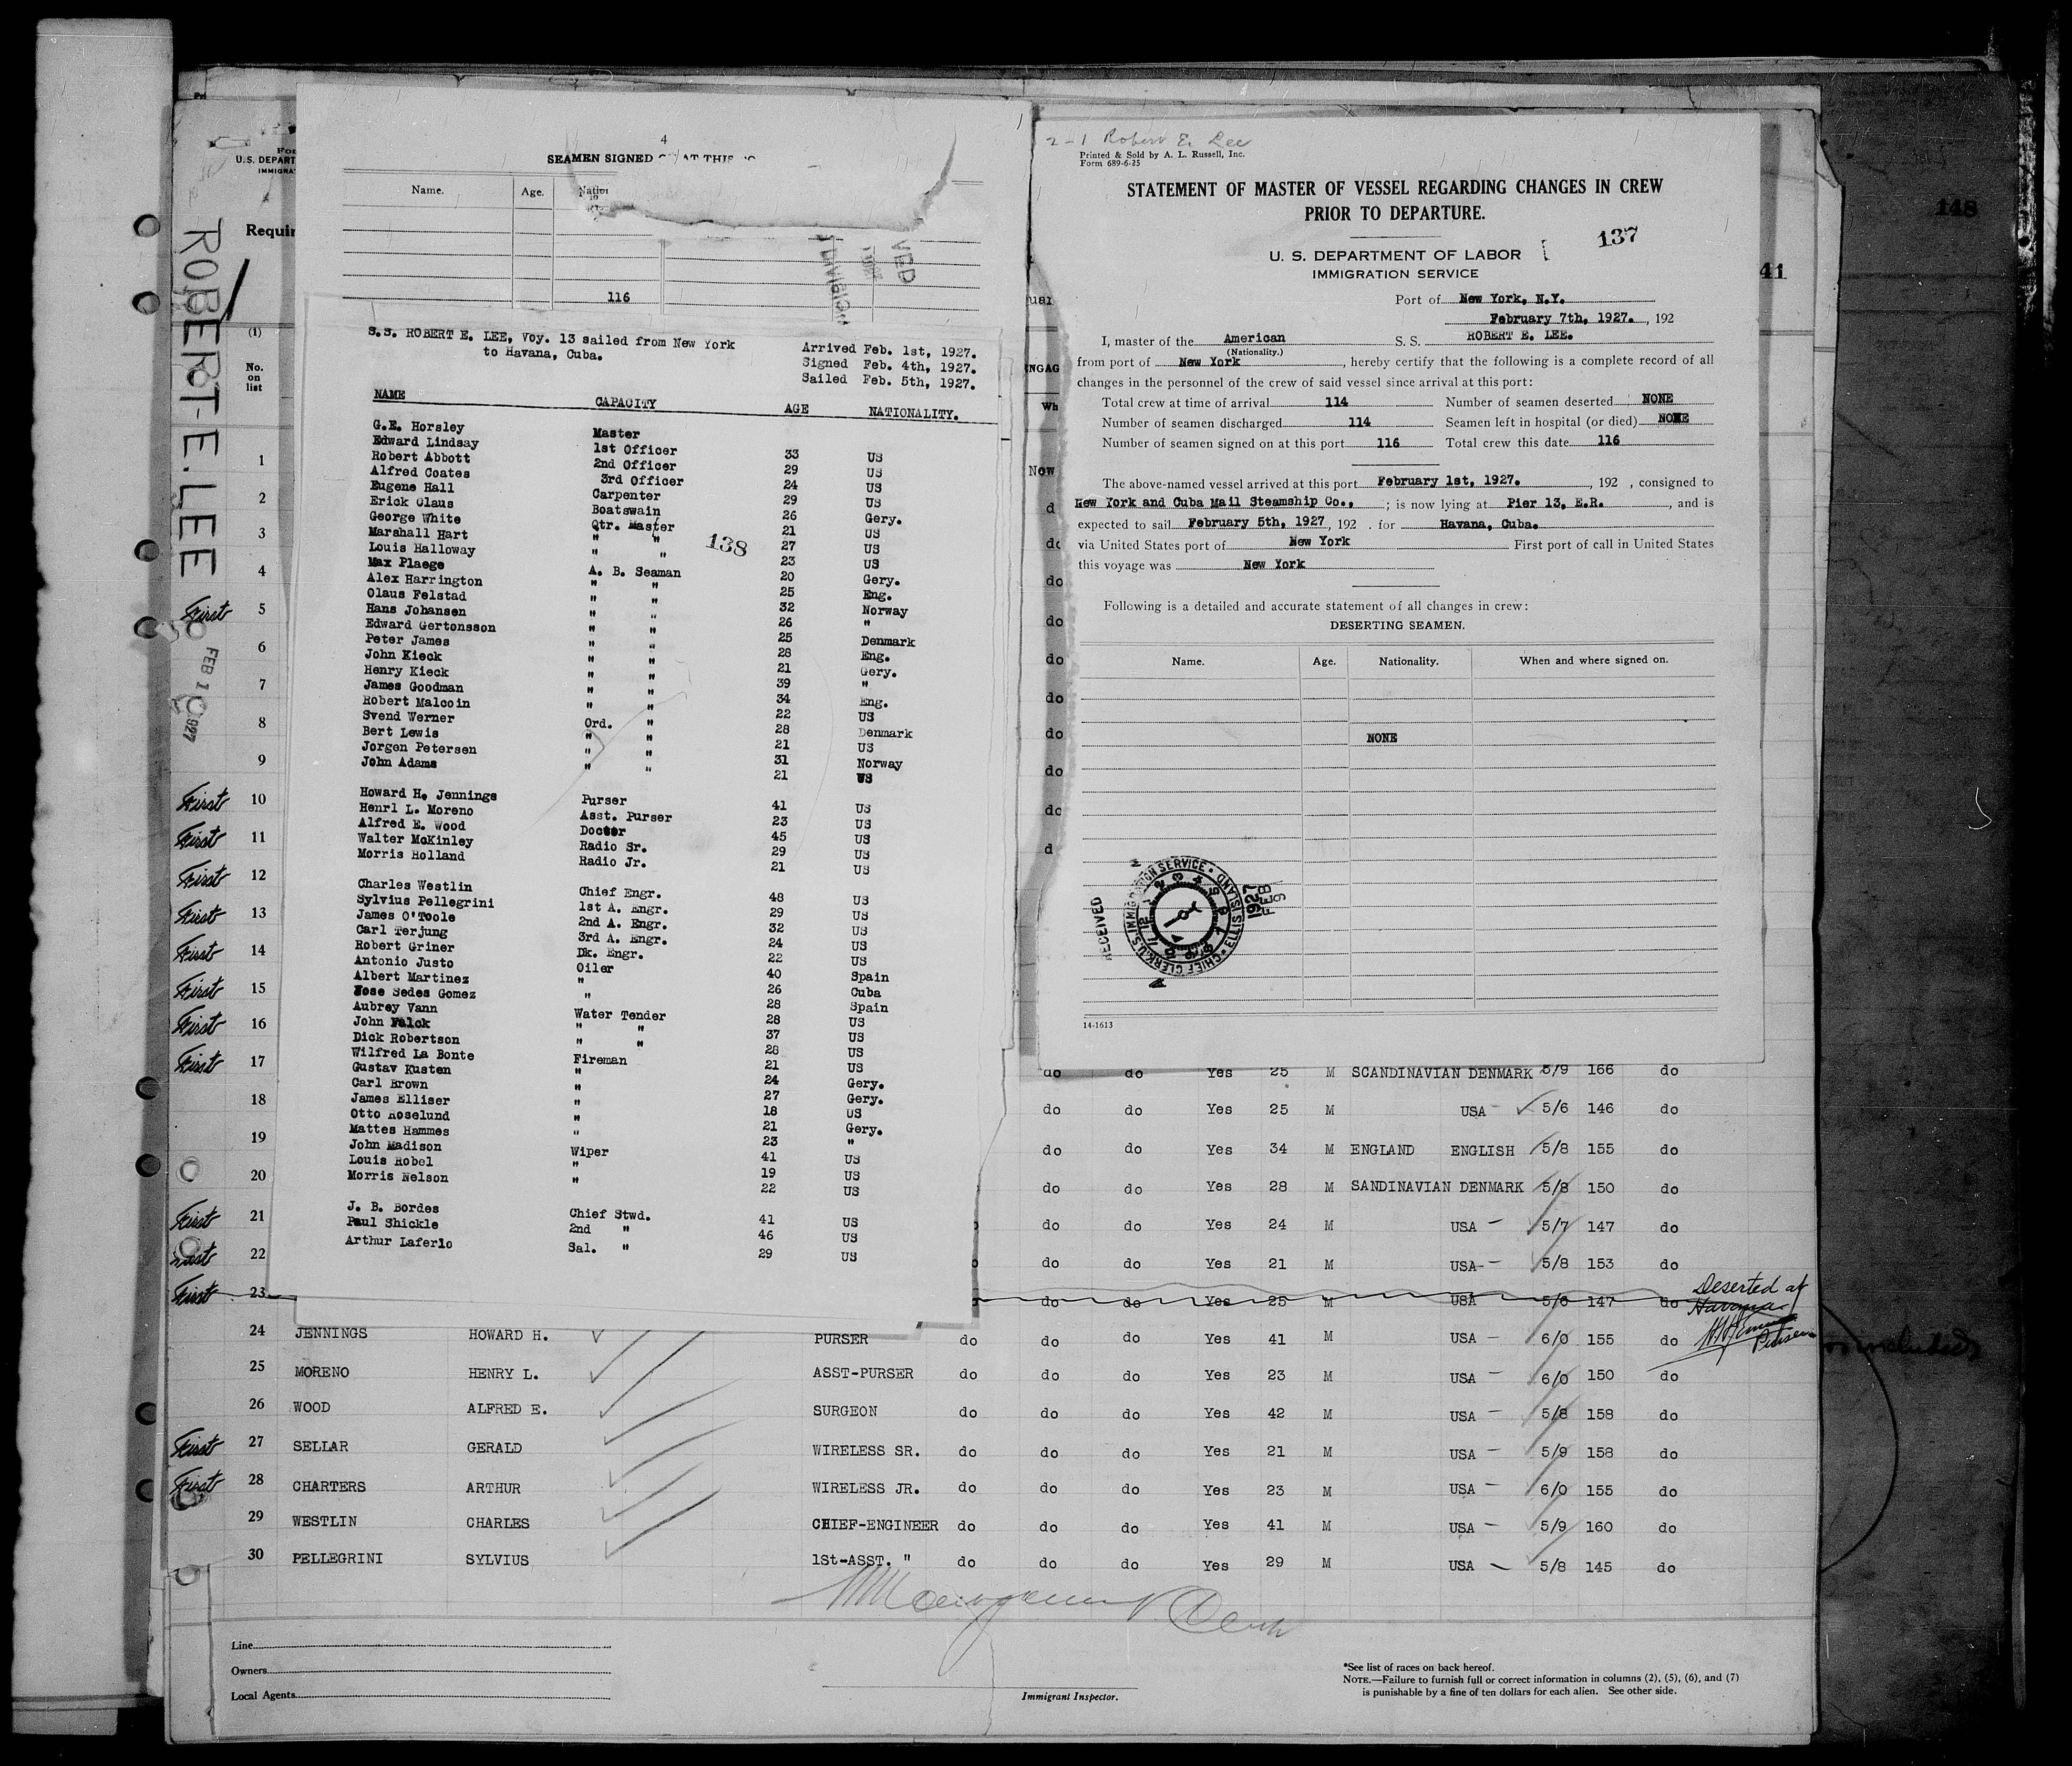 4
SEAMEN SIGNED
Name. Age.
116
138
S.S. ROBERT E. LEE, Voy. 13 sailed from New York
to Havana, Cuba.
Arrived Feb. 1st, 1927.
Signed Feb. 4th, 1927.
Sailed Feb. 5th, 1927.
NAME CAPACITY AGE NATIONALITY.
G.E. Horsley Master 33 US
Edward Lindsay 1st Officer 29 US
Robert Abbott 2nd Officer 24 US
Alfred Coates 3rd Officer 29 US
Eugene Hall Carpenter 26 Gery.
Erick Claus Boatswain 21 US
George White Qtr. Master 27 US
Marshall Hart " " 23 US
Louis Halloway " " 20 Gery.
Max Plaege A. B. Seaman 25 Eng.
Alex Harrington " " 32 Norway
Olaus Felstad " " 26 "
Hans Johansen " " 25 Denmark
Edward Gertonsson " " 28 Eng.
Peter James " " 21 Gery.
John Kieck " " 39 "
Henry Kieck " " 34 Eng.
James Goodman " " 22 US
Robert Malcoin " " 28 Denmark
Svend Werner Ord. " 21 US
Bert Lewis " " 31 Norway
Jorgen Petersen " " 21 US
John Adams " "
Howard H. Jennings Purser 41 US
Henrl L. Moreno Asst. Purser 23 US
Alfred E. Wood Doctor 45 US
Walter McKinley Radio Sr. 29 US
Morris Holland Radio Jr. 21 US
Charles Westlin Chief Engr. 48 US
Sylvius Pellegrini 1st A. Engr. 29 US
James O'Toole 2nd A. Engr. 32 US
Carl Terjung 3rd A. Engr. 24 US
Robert Griner Dk. Engr. 22 US
Antonio Justo Oiler 40 Spain
Albert Martinez " 26 Cuba
Jose Sedes Gomez " 28 Spain
Aubrey Vann Water Tender 28 US
John Falck " " 37 US
Dick Robertson " " 28 US
Wilfred La Bonte Fireman 21 US
Gustav Kusten " 24 Gery.
Carl Brown " 27 Gery.
James Elliser " 18 US
Otto Roselund " 21 Gery.
Mattes Hammes " 23 "
John Madison Wiper 41 US
Louis Robel " 19 US
Morris Nelson " 22 US
J. B. Bordes Chief Stwd. 41 US
Paul Shickle 2nd " 46 US
Arthur Laferlo Sal. " 29 US
2-1 Robert E. Lee
Printed & Sold by A. L. Russell, Inc.
Form 689-6-25
STATEMENT OF MASTER OF VESSEL REGARDING CHANGES IN CREW
PRIOR TO DEPARTURE.
137
U. S. DEPARTMENT OF LABOR
IMMIGRATION SERVICE
Port of New York, N.Y.
February 7th, 1927. , 192
I, master of the American S. S. ROBERT E. LEE.
(Nationality.)
from port of New York , hereby certify that the following is a complete record of all
changes in the personnel of the crew of said vessel since arrival at this port:
Total crew at time of arrival 114 Number of seamen deserted NONE
Number of seamen discharged 114 Seamen left in hospital (or died) NONE
Number of seamen signed on at this port 116 Total crew this date 116
The above-named vessel arrived at this port February 1st, 1927. , 192 , consigned to
New York and Cuba Mail Steamship Co., ; is now lying at Pier 13, E.R. , and is
expected to sail February 5th, 1927 , 192 . for Havana, Cuba.
via United States port of New York First port of call in United States
this voyage was New York
Following is a detailed and accurate statement of all changes in crew:
DESERTING SEAMEN.
Name. Age. Nationality. When and where signed on.
NONE
RECEIVED
U.S. IMMIGRATION SERVICE · ELLIS ISLAND · CHIEF CLERK
1927 FEB 9
14-1613
148
41
U. S. DEPART
IMMIGRA
Requir
ROBERT-E.LEE
FEB 10 1927
(1)
No.
on
list
1
2
3
4
First 5
6
7
8
9
First 10
First 11
First 12
First 13
First 14
First 15
First 16
First 17
18
19
20
First 21
First 22
First 23
do do Yes 25 M SCANDINAVIAN DENMARK 5/9 166 do
do do Yes 25 M USA 5/6 146 do
do do Yes 34 M ENGLAND ENGLISH 5/8 155 do
do do Yes 28 M SANDINAVIAN DENMARK 5/8 150 do
do do Yes 24 M USA 5/7 147 do
do do Yes 21 M USA 5/8 153 do
do do Yes 25 M USA 5/6 147 do
Deserted at
Havana
Purser
24 JENNINGS HOWARD H. PURSER do do do Yes 41 M USA 6/0 155 do
25 MORENO HENRY L. ASST-PURSER do do do Yes 23 M USA 6/0 150 do
26 WOOD ALFRED E. SURGEON do do do Yes 42 M USA 5/8 158 do
First 27 SELLAR GERALD WIRELESS SR. do do do Yes 21 M USA 5/9 158 do
First 28 CHARTERS ARTHUR WIRELESS JR. do do do Yes 23 M USA 6/0 155 do
29 WESTLIN CHARLES CHIEF-ENGINEER do do do Yes 41 M USA 5/9 160 do
30 PELLEGRINI SYLVIUS 1St-ASST. " do do do Yes 29 M USA 5/8 145 do
Line
Owners
Local Agents
Immigrant Inspector.
*See list of races on back hereof.
NOTE.—Failure to furnish full or correct information in columns (2), (5), (6), and (7)
is punishable by a fine of ten dollars for each alien. See other side.